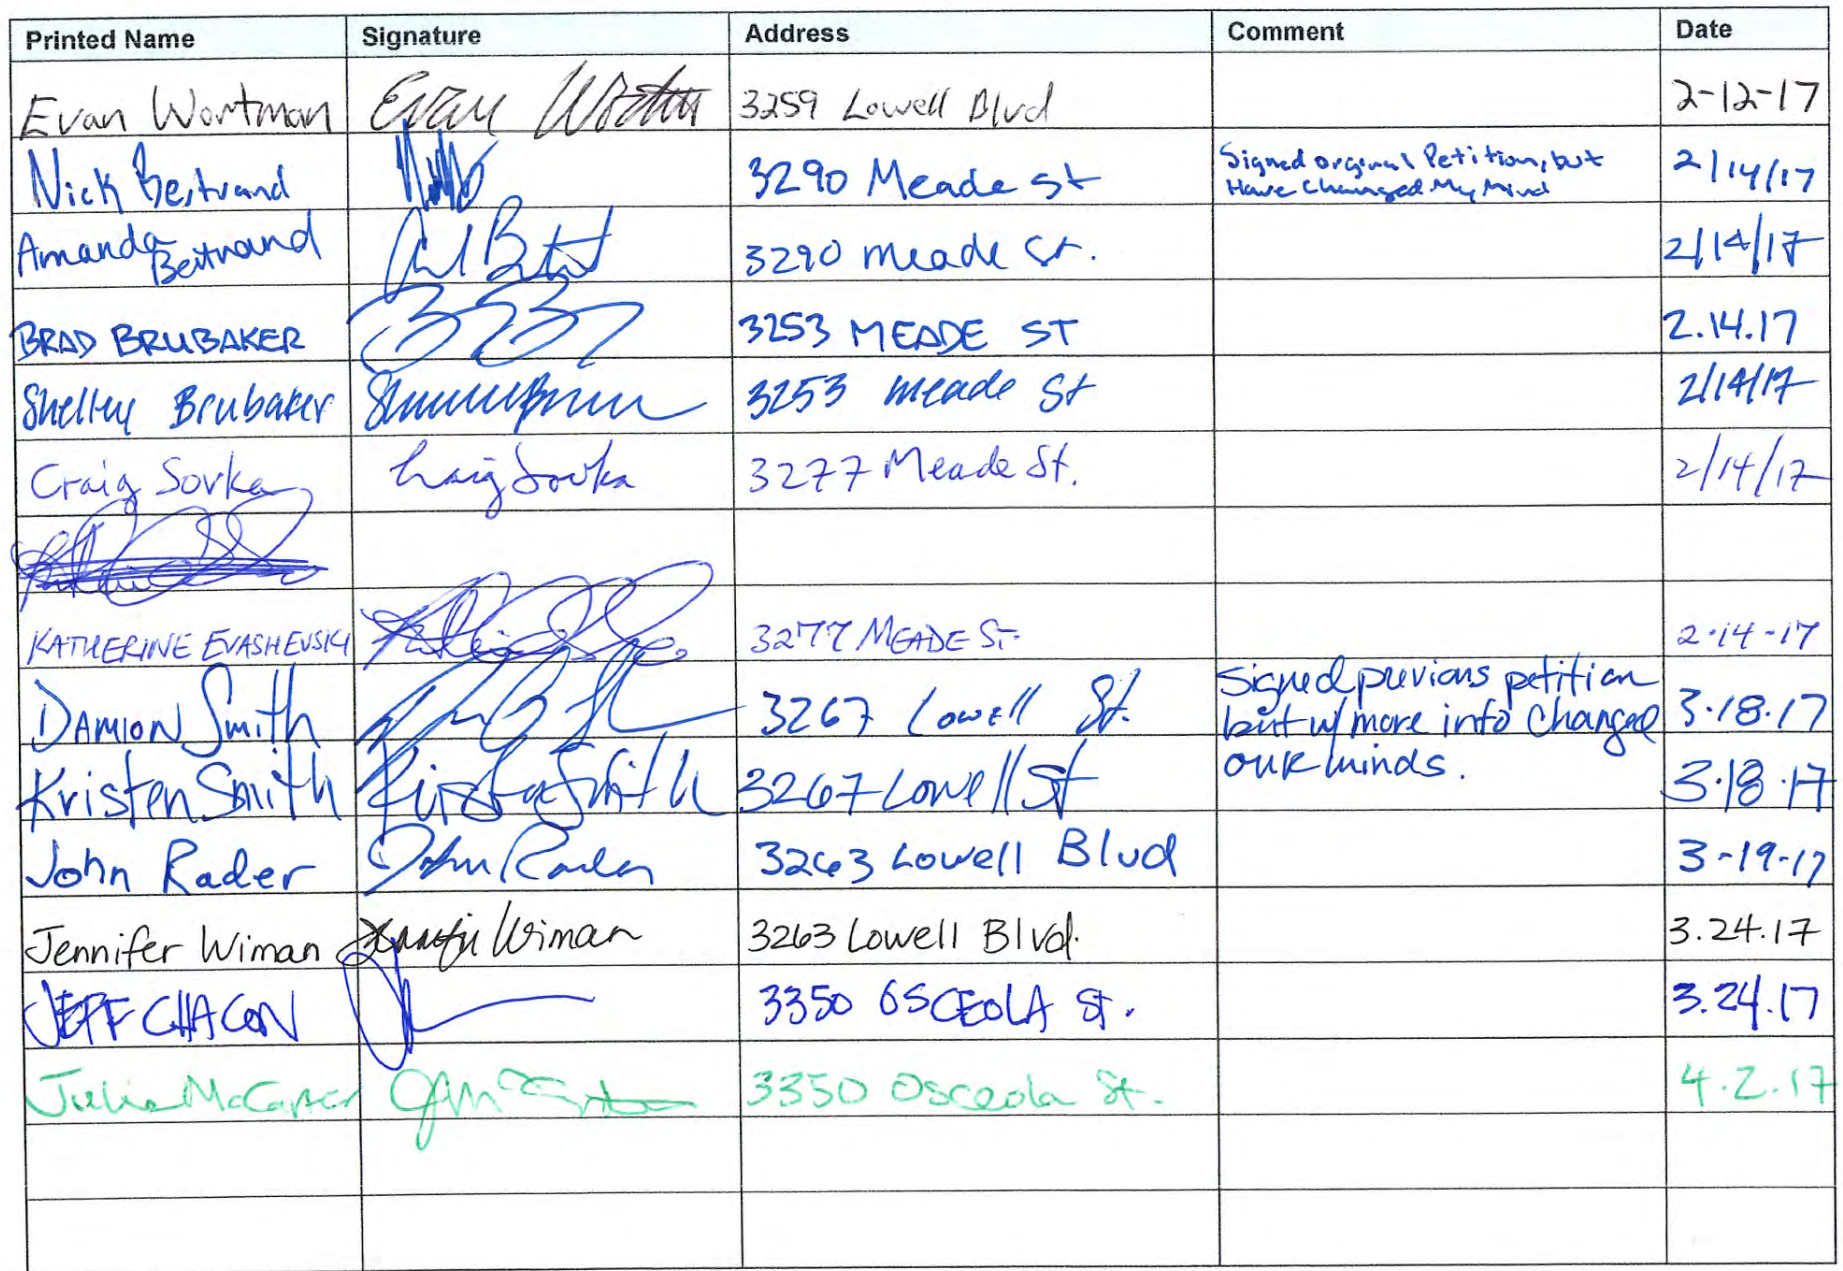 Printed Name Signature Address Comment Date
Evan Wortman Evan 3259 Lowell Blvd 2-12-17
Nick Bertrand 3290 Meade St Signed orginal Petition, but 2/14/17
Have Changed My Mind
Amanda Bertrand 3290 Meade St. 2/14/17
BRAD BRUBAKER 3253 MEADE ST 2.14.17
Shelley Brubaker 3253 Meade St 2/14/17
Craig Sovka Craig Sovka 3277 Meade St. 2/14/17
KATHERINE EVASHEVSKI 3277 MEADE ST. 2.14-17
DAMION Smith 3267 Lowell St. Signed previous petition 3.18.17
but w/ more info Changed
Kristen Smith Kristen Smith 3267 Lowell St our minds. 3.18.17
John Rader John Rader 3263 Lowell Blvd 3-19-17
Jennifer Wiman Jennifer Wiman 3263 Lowell Blvd. 3.24.17
JEFF CHACON 3350 OSCEOLA St. 3.24.17
Julie 3350 Osceola St. 4.2.17